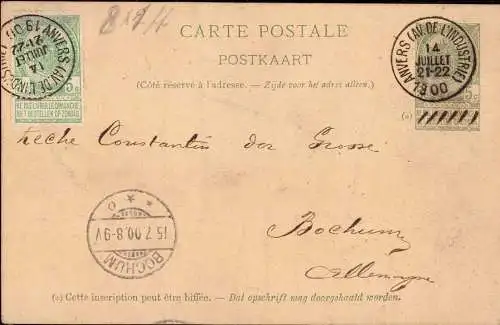 8124
CARTE POSTALE
POSTKAART
(Côté réservé à l'adresse. – Zijde voor het adres alleen.)
ANVERS (AV. DE L'INDUSTRIE)
14
JUILLET
21-22
1900
ANVERS (AV. DE L'INDUSTRIE)
14
JUILLET
21-22
1900
5c
NE PAS LIVRER LE DIMANCHE
NIET BESTELLEN OP ZONDAG
5c
(a)
Constantin der Grosse
Bochum
Allemagne
15.7.00.8-9V
BOCHUM
(a) Cette inscription peut être biffée. – Dat opschrift mag doorgehaald worden.